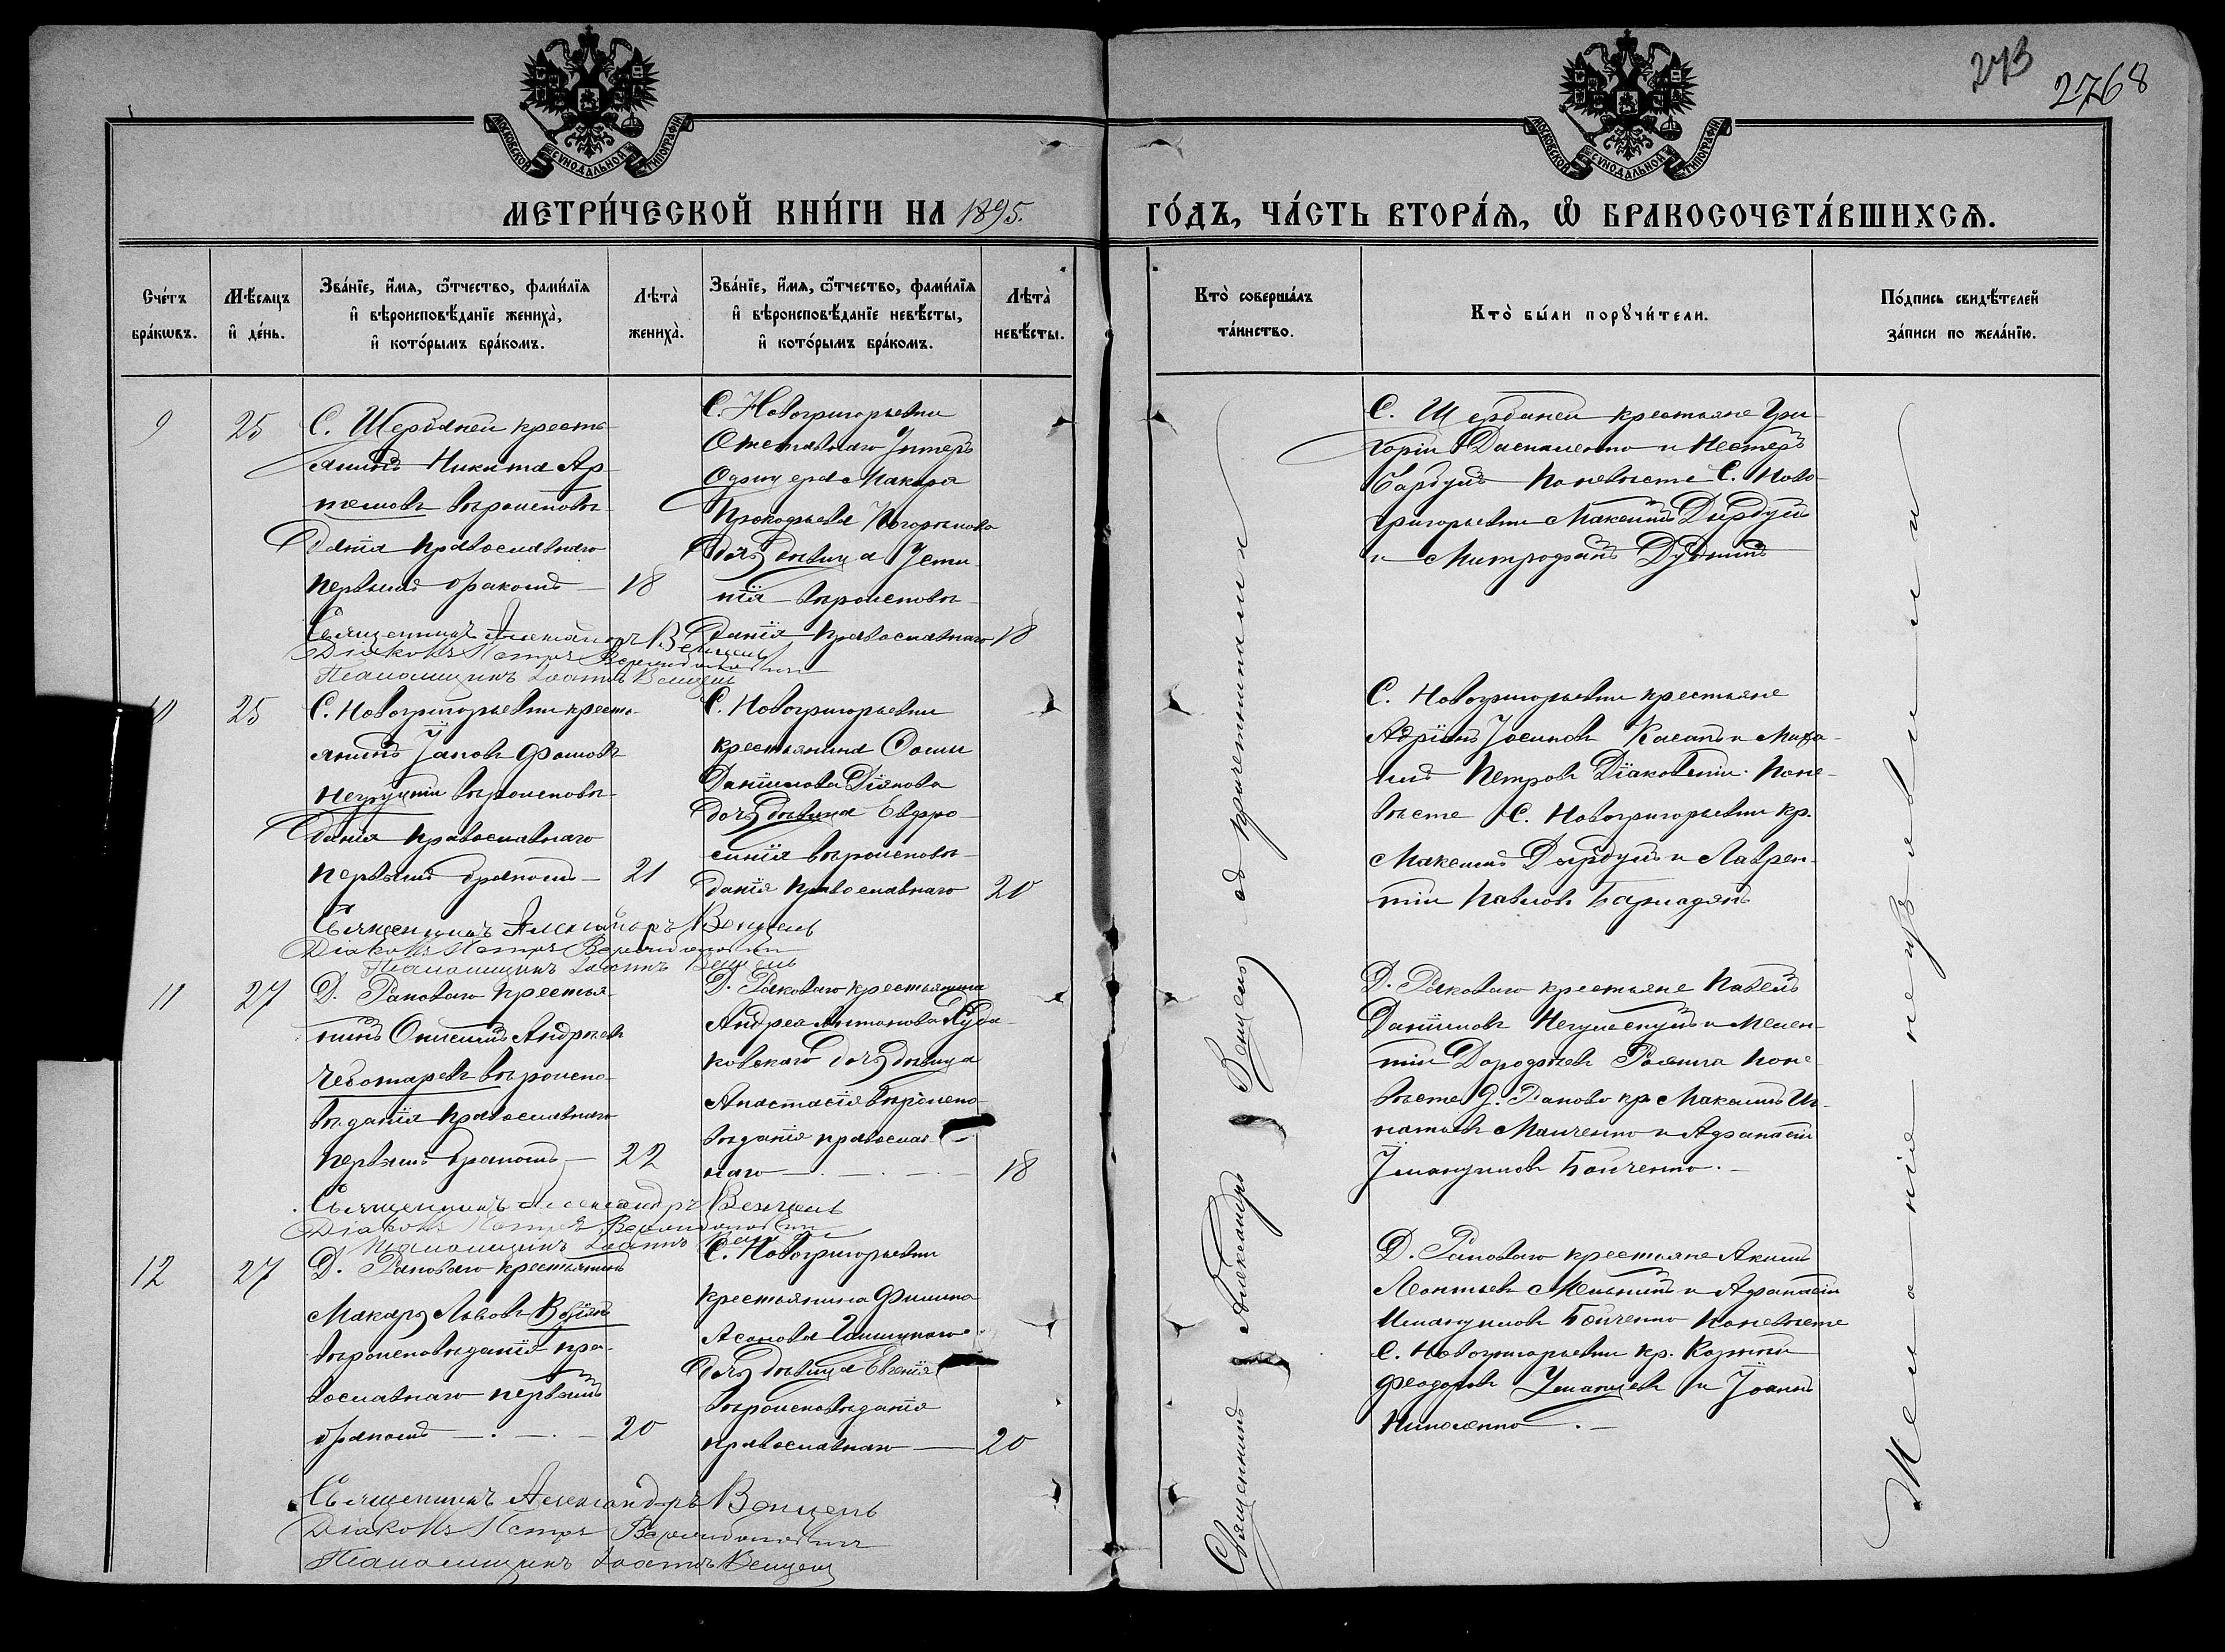 273
2768
МОСКОВСКОЙ СѴНОДАЛЬНОЙ ТИПОГРАФІИ
МОСКОВСКОЙ СѴНОДАЛЬНОЙ ТИПОГРАФІИ
МЕТРИ́ЧЕСКОЙ КНИ́ГИ НА 1895.
ГО́ДЪ, ЧА́СТЬ ВТОРА́Я, Ѽ БРАКОСОЧЕТА́ВШИХСЯ.
Сче́тъ
бра́кѡвъ.
Мѣ́сяцъ
и҆ де́нь.
Зва́нїе, и҆́мя, ѻ҆́тчество, фами́лїя
и҆ вѣроисповѣ́данїе жениха̀,
и҆ кото́рымъ бра́комъ.
Лѣта̀
жениха̀.
Зва́нїе, и҆́мя, ѻ҆́тчество, фами́лїя
и҆ вѣроисповѣ́данїе невѣ́сты,
и҆ кото́рымъ бра́комъ.
Лѣта̀
невѣ́сты.
Кто̀ соверша́лъ
та́инство.
Кто̀ бы́ли порꙋчи́тели.
По́дпись свидѣ́телей
за́писи по жела́нїю.
9
25
С. Щербаней кресть-
янинъ Никита Ар-
темовъ вѣроисповѣ-
данія православнаго
первымъ бракомъ — 18
С. Новогригорьевки
Отставнаго Унтеръ
Офицера Макара
Прокофьева
дочь дѣвица Усти-
нія вѣроисповѣ-
данія православнаго 18
С. Щербаней крестьяне Гри-
горій и Нестеръ
По невѣсте С. Ново-
григорьевки Максимъ Дырдулъ
и Митрофанъ
Священникъ Александръ Венцель
Діаконъ Петръ
Псаломщикъ Іоаннъ Венцель
10
25
С. Новогригорьевки кресть-
янинъ Іаковъ Фомовъ
вѣроисповѣ-
данія православнаго
первымъ бракомъ — 21
С. Новогригорьевки
крестьянина
Даніилова Діякова
дочь дѣвица Евфро-
синія вѣроисповѣ-
данія православнаго 20
С. Новогригорьевки крестьяне
Адріанъ Іосифовъ и Миха-
илъ Петровъ По не-
вѣсте С. Новогригорьевки кр.
Максимъ Дырдулъ и Лаврен-
тій Павловъ
Священникъ Александръ Венцель
Діаконъ Петръ
Псаломщикъ Іоаннъ Венцель
11
27
Д. Раковаго крестья-
нинъ Онисимъ Андреевъ
Чеботаревъ вѣроиспо-
вѣданія православнаго
первымъ бракомъ — 22
Д. Раковаго крестьянина
Андрея Антонова
дочь дѣвица
Анастасія вѣроиспо-
вѣданія православ-
наго — 18
Д. Раковаго крестьяне Павелъ
Данииловъ и Мелен-
тій Дорофѣевъ По не-
вѣсте Д. Раково кр. Максимъ Иг-
натьевъ и Афанасій
Бойченко. —
Священникъ Александръ Венцель
Діаконъ Петръ
Псаломщикъ Іоаннъ
12
27
Д. Раковаго крестьянинъ
Макаръ Львовъ
вѣроисповѣданія пра-
вославнаго первымъ
бракомъ — 20
С. Новогригорьевки
крестьянина Филипа
дочь дѣвица Евгенія
вѣроисповѣданія
православнаго — 20
Д. Раковаго крестьяне Акимъ
Леонтьевъ и Афанасій
Бойченко По невѣсте
С. Новогригорьевки кр.
Феодоровъ и Іоаннъ
Священникъ Александръ Венцель
Діаконъ Петръ
Псаломщикъ Іоаннъ Венцель
Священникъ Александръ Венцель со причетниками
Желаніе не изъявили